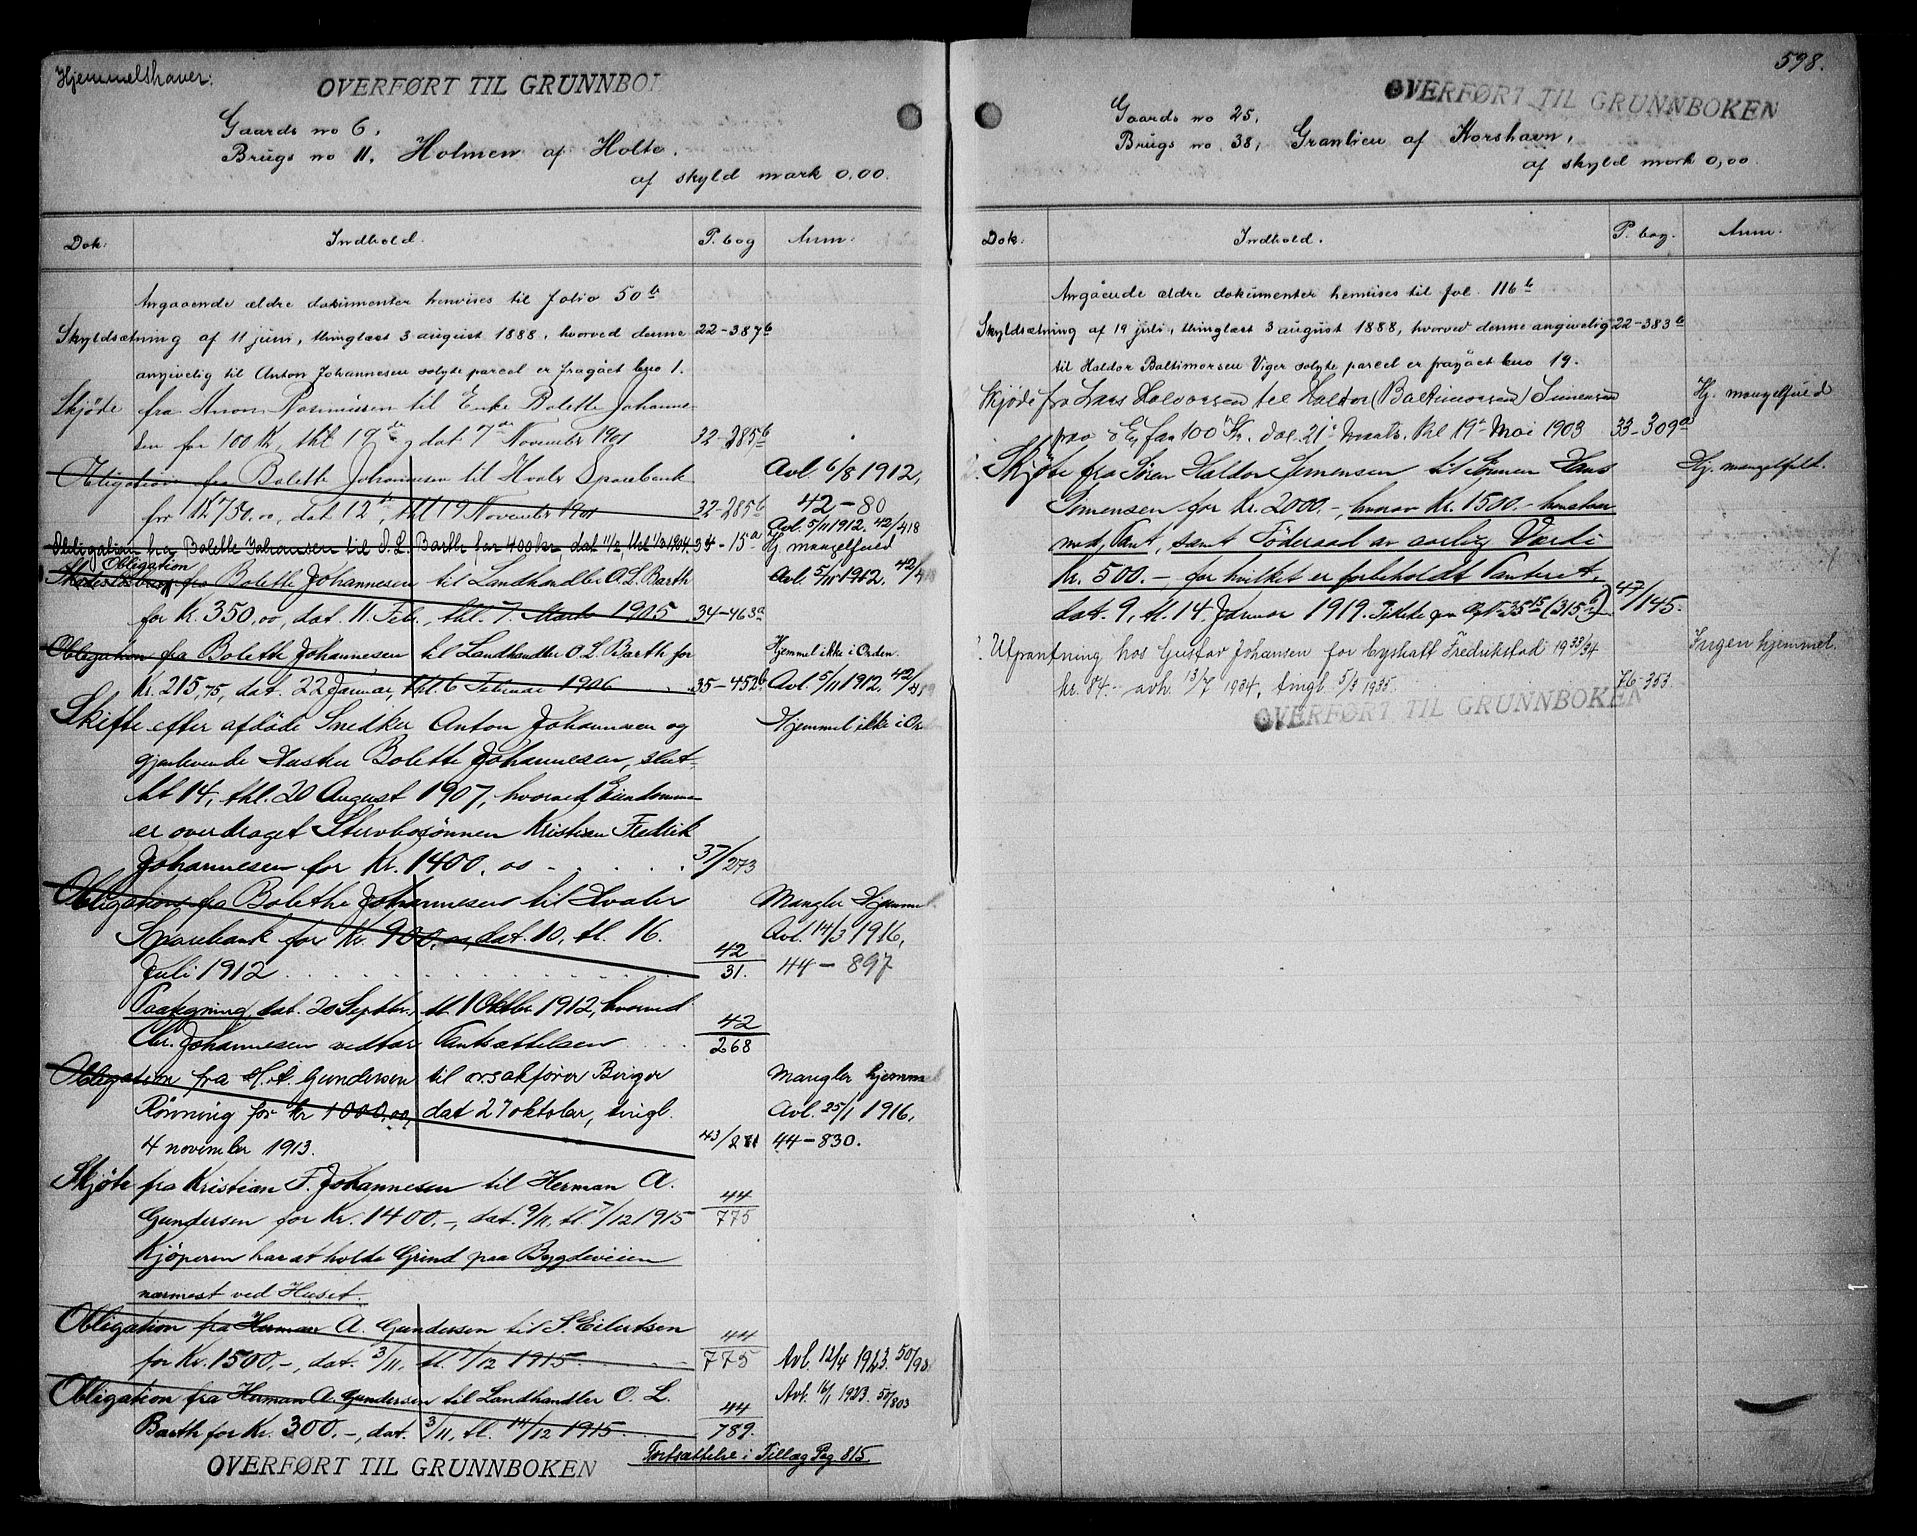 Hjemmelshaver:
OVERFØRT TIL GRUNNBOK
Gaards no 6,
Brugs no 11, Holmen af Holte.
af skyld mark 0,00.
Dok: Indhold. P. bog Anm:
Angaaende ældre dokumenter henvises til folio 50b
Skyldsætning af 11 juni, thinglæst 3 august 1888, hvorved denne 22-387b
angivelig til Anton Johannesen solgte parcel er fragået bno 1.
Skjøde fra Anon Rasmussen til Enke Bolette Johanne-
sen for 100 Kr, dat 7de November 1901 32-285b
Obligation fra Bolette Johannesen til Hvaler Sparebank Avl. 6/8 1912,
for Kr 750,00, dat 12te, thl 19 November 1901 32-285b 42-80
Avl. 5/11 1912. 42/418
Obligation fra Bolette Johansen til O. L. Barth for 400 kr dat 11/2 thl 1/3 1904. 34-15a Hj mangelfuld
Obligation
fra Bolette Johannesen til Landhandler O. L. Barth Avl. 5/11 1912. 42/418
for Kr. 350,00, dat. 11 Feb., thl. 7. Marts 1905 34-463a
Obligation fra Bolette Johannesen til Landhandler O. L. Barth for Hjemmel ikke i Orden.
Kr. 215,75, dat. 22 Januar, thl. 6 Februar 1906 35-452b Avl. 5/11 1912. 42/419
Skifte efter afdøde Snedker Anton Johannesen og Hjemmel ikke i Or
gjenlevende Hustru Bolette Johannesen, slut-
tet 14, thl. 20 August 1907, hvorved Eiendommen
er overdraget Stervbosønnen Kristian Fredrik
Johannesen for Kr. 1400,00 37/273
Obligation fra Bolethe Johannesen til Hvaler Mangler Hjemmel
Sparebank for Kr. 900,00, dat. 10, tl. 16. 42 Avl. 14/3 1916,
Juli 1912 31. 44-897
Paategning, dat. 20 Septbr, tl. 1 Oktbr 1912, hvorved 42
Chr. Johannesen vedtar Pantsættelsen 268
Obligation fra H. A. Gundersen til orsakfører Birger Mangler hjemmel
Rønning for kr 1000,00, dat 27 oktober, tingl. Avl. 25/1 1916,
4 november 1913. 43/211 44-830.
Skjøte fra Kristian F. Johannesen til Herman A. 44
Gundersen for Kr. 1400.-, dat. 9/11, tl 7/12 1915 775
Kjøperen har at holde Grind paa Bygdeveien
nærmest ved Huset.
Obligation fra Herman A. Gundersen til S. Eilertsen 44
for Kr. 1500.-, dat. 3/11, tl 7/12 1915 775 Avl. 12/4 1923. 50/98
Obligation fra Herman A. Gundersen til Landhandler O. L. 44 Avl. 16/1 1923. 50/803
Barth for Kr. 300.-, dat. 3/11, tl. 14/12 1915 789.
OVERFØRT TIL GRUNNBOKEN
Fortsættelse i Tillæg Pag 815.
598.
OVERFØRT TIL GRUNNBOKEN
Gaards no 25,
Brugs no. 38, Granlien af Korshavn,
af skyld mark 0,00.
Dok: Indhold. P. bog. Anm.
Angående ældre dokumenter henvises til fol. 116b
Skyldsætning af 19 juli, thinglæst 3 august 1888, hvorved denne angivelig 22-383b
til Haldor Baltimorsen Viger solgte parcel er fragået bno 19.
Skjøde fra Lars Halvorsen til Haldor (Baltimorsen) Simensen Hj. mangelfuld
for 100 Kr. dat. 21de Marts, thl 19de Mai 1903 33-309a
Skjøte fra Søren Haldor Simensen til Sønnen Hans Hj. mangelfuldt.
Simensen for Kr. 2000.-, hvorav Kr. 1500.-
med Pant, samt Föderaad av aarlig Værdi
Kr. 500.-, for hvilket er forbeholdt Panteret,
dat. 9, tl. 14. Januar 1919. 47/145.
Utpantning hos Gustav Johansen for byskatt Fredrikstad 1933/34 Ingen hjemmel.
kr. 84.- avh. 13/7 1934, tingl. 5/3 1935. 76-353
OVERFØRT TIL GRUNNBOKEN